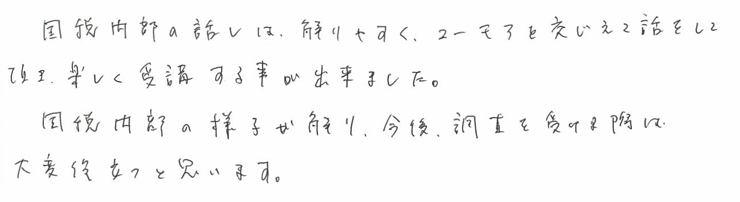 国税内部の話しは、解りやすく、ユーモアを交じえて話をして
頂き、楽しく受講する事が出来ました。
国税内部の様子が解り、今後、調査を受ける際は
大変役立つと思います。